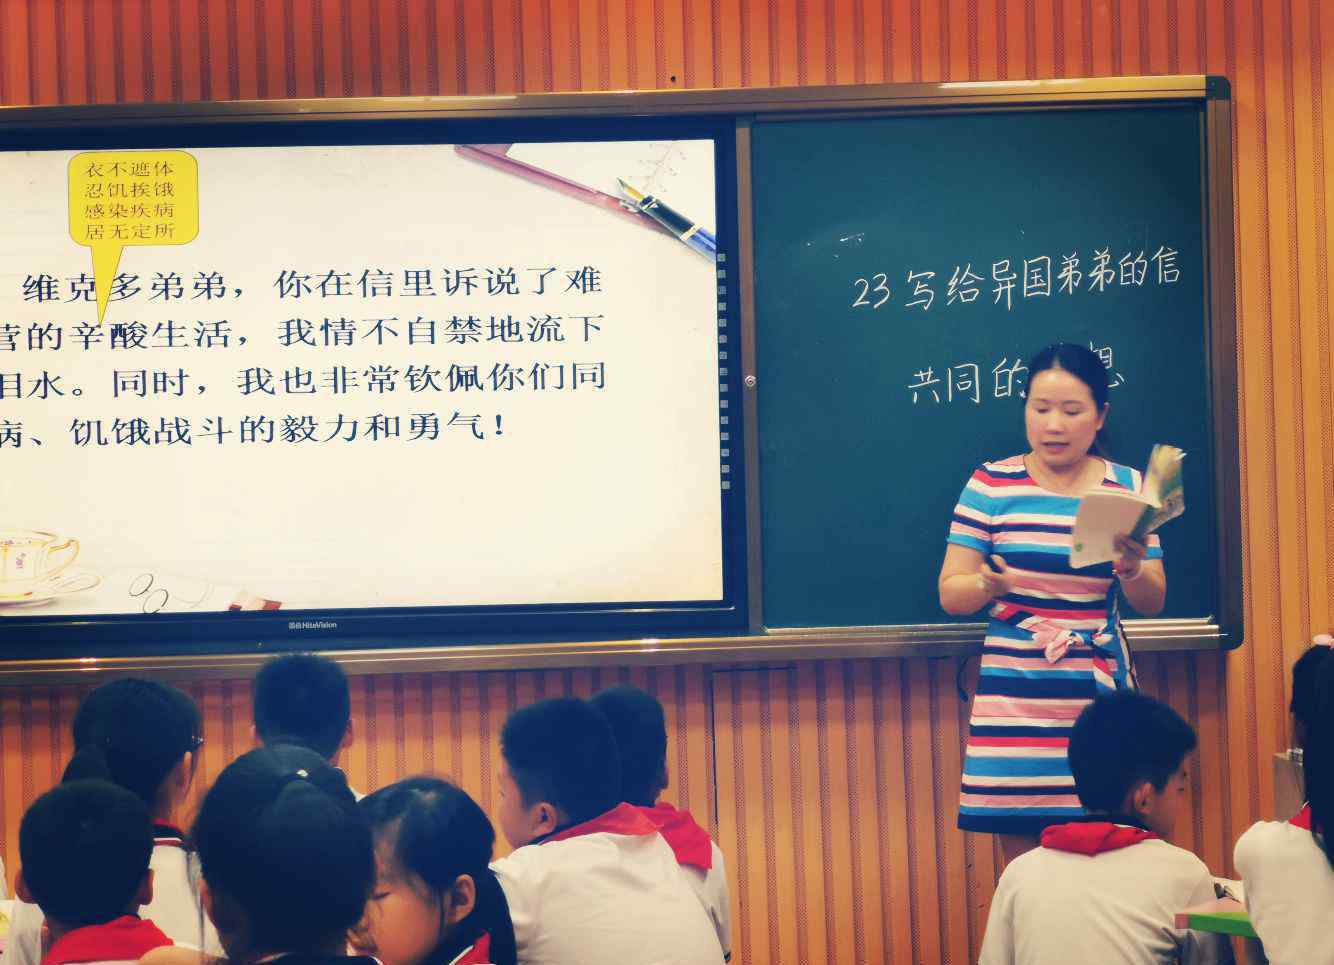 衣不遮体
忍饥挨饿
感染疾病
居无定所
维克多弟弟，你在信里诉说了难
营的辛酸生活，我情不自禁地流下
泪水。同时，我也非常钦佩你们同
病、饥饿战斗的毅力和勇气！
HiteVision
23 写给异国弟弟的信
共同的 想